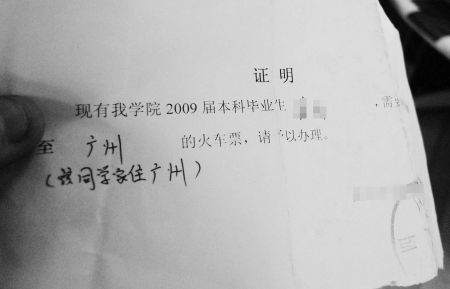 证明
现有我学院 2009 届本科毕业生 ，需
至 广州 的火车票，请予以办理。
（该同学家住广州）